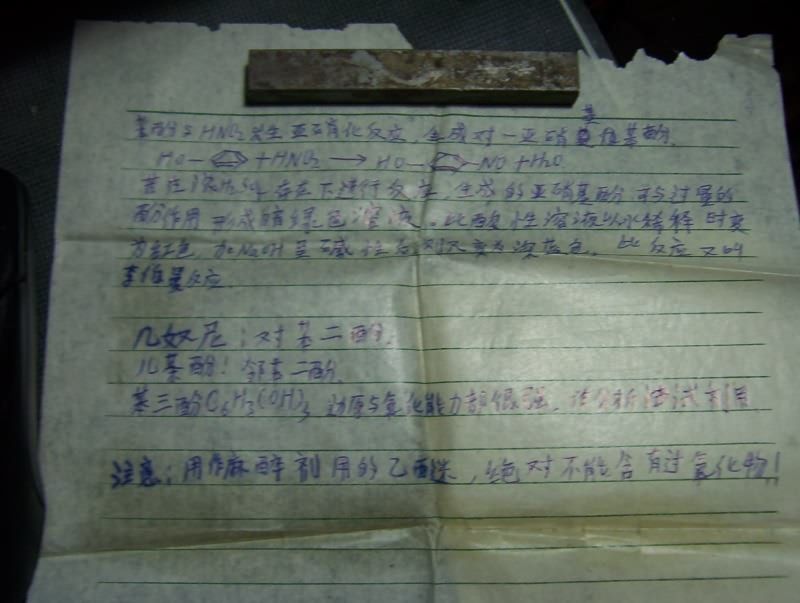 苯酚与HNO₂发生亚硝化反应,生成对一亚硝基苯酚.
HO— +HNO₂ → HO— —NO +H₂O
若在浓H₂SO₄存在下进行反应,生成的亚硝基酚可与过量的
酚作用形成暗绿色溶液。此酸性溶液以水稀释时变
为红色,加NaOH至碱性后则又变为深蓝色。此反应又叫
反应
几奴尼:对苯二酚.
儿茶酚:邻苯二酚.
苯三酚C₆H₃(OH)₃ 还原与氧化能力都很强,作分析测试剂用
注意:用作麻醉剂用的乙醚,绝对不能含有过氧化物!